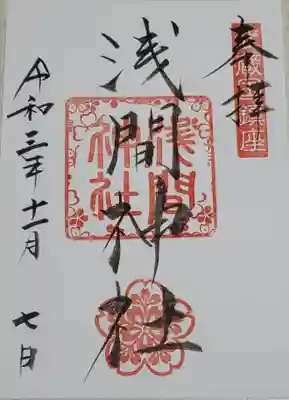 奉拝
武蔵国鎮座
浅間神社
浅間神社
令和三年十一月
七日